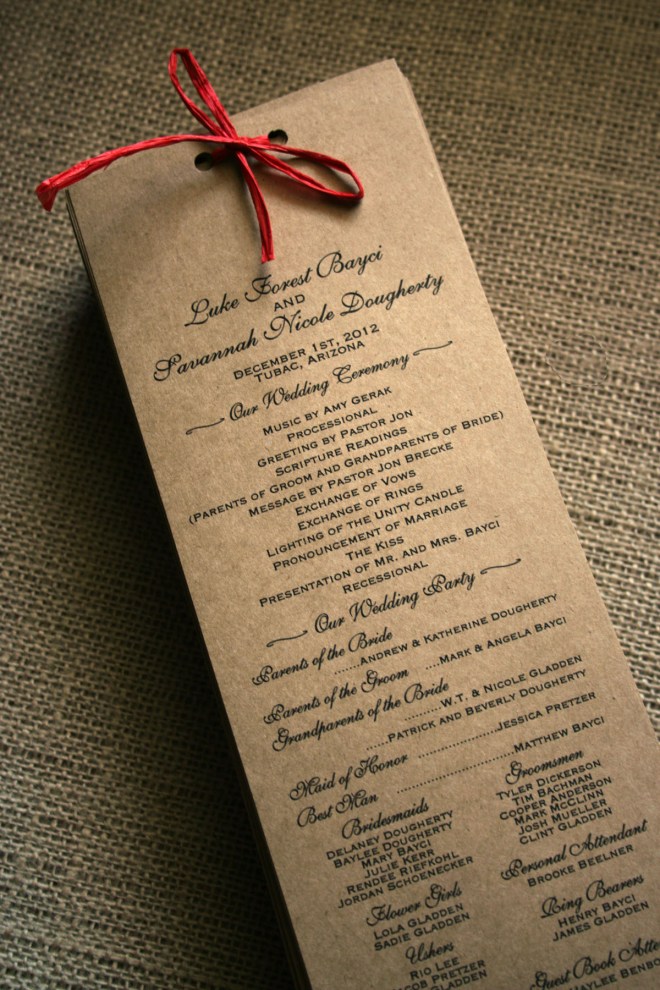 Luke Forest Bayci
AND
Savannah Nicole Dougherty
DECEMBER 1ST, 2012
TUBAC, ARIZONA
Our Wedding Ceremony
MUSIC BY AMY GERAK
PROCESSIONAL
GREETING BY PASTOR JON
SCRIPTURE READINGS
(PARENTS OF GROOM AND GRANDPARENTS OF BRIDE)
MESSAGE BY PASTOR JON BRECKE
EXCHANGE OF VOWS
EXCHANGE OF RINGS
LIGHTING OF THE UNITY CANDLE
PRONOUNCEMENT OF MARRIAGE
THE KISS
PRESENTATION OF MR. AND MRS. BAYCI
RECESSIONAL
Our Wedding Party
Parents of the Bride
.......ANDREW & KATHERINE DOUGHERTY
Parents of the Groom ....MARK & ANGELA BAYCI
Grandparents of the Bride
..........W.T. & NICOLE GLADDEN
......PATRICK AND BEVERLY DOUGHERTY
Maid of Honor ......................JESSICA PRETZER
Best Man ........................MATTHEW BAYCI
Bridesmaids
DELANEY DOUGHERTY
BAYLEE DOUGHERTY
MARY BAYCI
JULIE KERR
RENDEE RIEFKOHL
JORDAN SCHOENECKER
Flower Girls
LOLA GLADDEN
SADIE GLADDEN
Ushers
RIO LEE
JACOB PRETZER
Groomsmen
TYLER DICKERSON
TIM BACHMAN
COOPER ANDERSON
MARK MCCLINN
JOSH MUELLER
CLINT GLADDEN
Personal Attendant
BROOKE BEELNER
Ring Bearers
HENRY BAYCI
JAMES GLADDEN
Guest Book